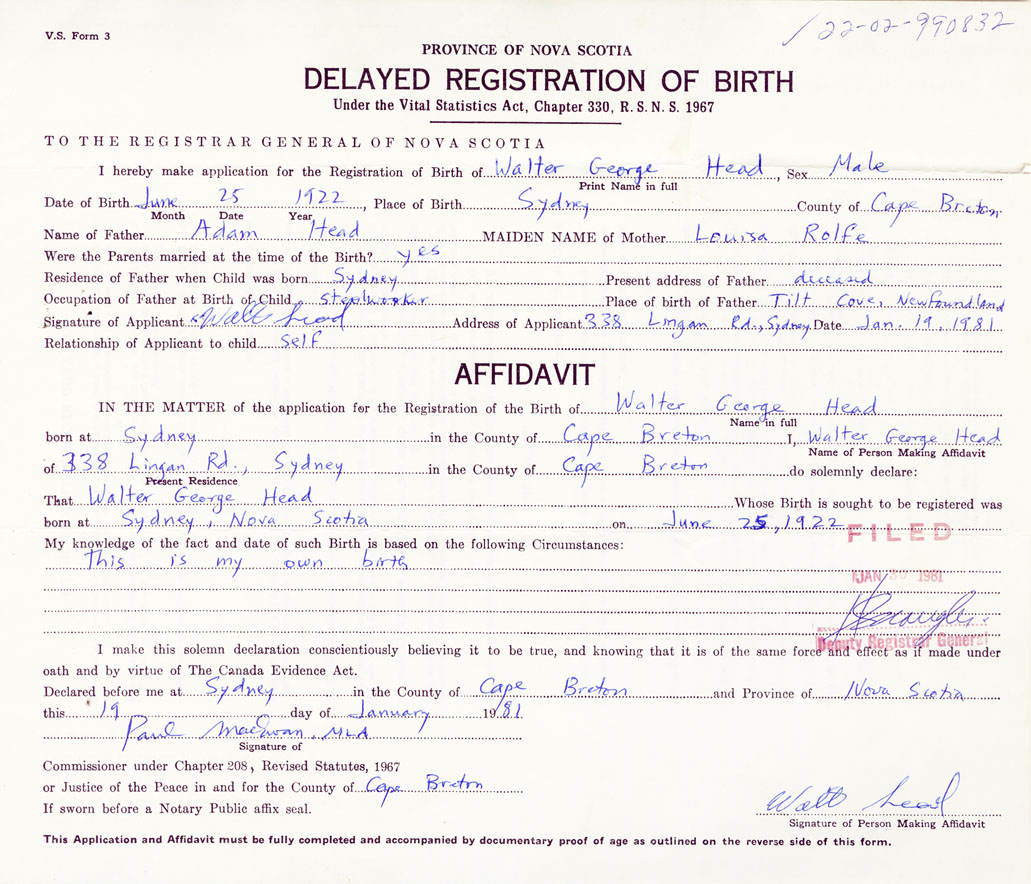 V.S. Form 3
22-02-990832
PROVINCE OF NOVA SCOTIA
DELAYED REGISTRATION OF BIRTH
Under the Vital Statistics Act, Chapter 330, R.S.N.S. 1967
TO THE REGISTRAR GENERAL OF NOVA SCOTIA
I hereby make application for the Registration of Birth of Walter George Head, Sex Male
Print Name in full
Date of Birth June 25 1922, Place of Birth Sydney County of Cape Breton
Month Date Year
Name of Father Adam Head MAIDEN NAME of Mother Louisa Rolfe
Were the Parents married at the time of the Birth? yes
Residence of Father when Child was born Sydney Present address of Father deceased
Occupation of Father at Birth of Child steelworker Place of birth of Father Tilt Cove, Newfoundland
Signature of Applicant Walt Head Address of Applicant 338 Lingan Rd., Sydney Date Jan. 19, 1981
Relationship of Applicant to child self
AFFIDAVIT
IN THE MATTER of the application for the Registration of the Birth of Walter George Head
Name in full
born at Sydney in the County of Cape Breton I, Walter George Head
Name of Person Making Affidavit
of 338 Lingan Rd., Sydney in the County of Cape Breton do solemnly declare:
Present Residence
That Walter George Head Whose Birth is sought to be registered was
born at Sydney, Nova Scotia on June 25, 1922
FILED
My knowledge of the fact and date of such Birth is based on the following Circumstances:
This is my own birth
JAN 30 1981
Deputy Registrar General
I make this solemn declaration conscientiously believing it to be true, and knowing that it is of the same force and effect as if made under
oath and by virtue of The Canada Evidence Act.
Declared before me at Sydney in the County of Cape Breton and Province of Nova Scotia
this 19 day of January 1981
Paul MacEwan, MLA
Signature of
Commissioner under Chapter 208, Revised Statutes, 1967
or Justice of the Peace in and for the County of Cape Breton
If sworn before a Notary Public affix seal.
Walt Head
Signature of Person Making Affidavit
This Application and Affidavit must be fully completed and accompanied by documentary proof of age as outlined on the reverse side of this form.